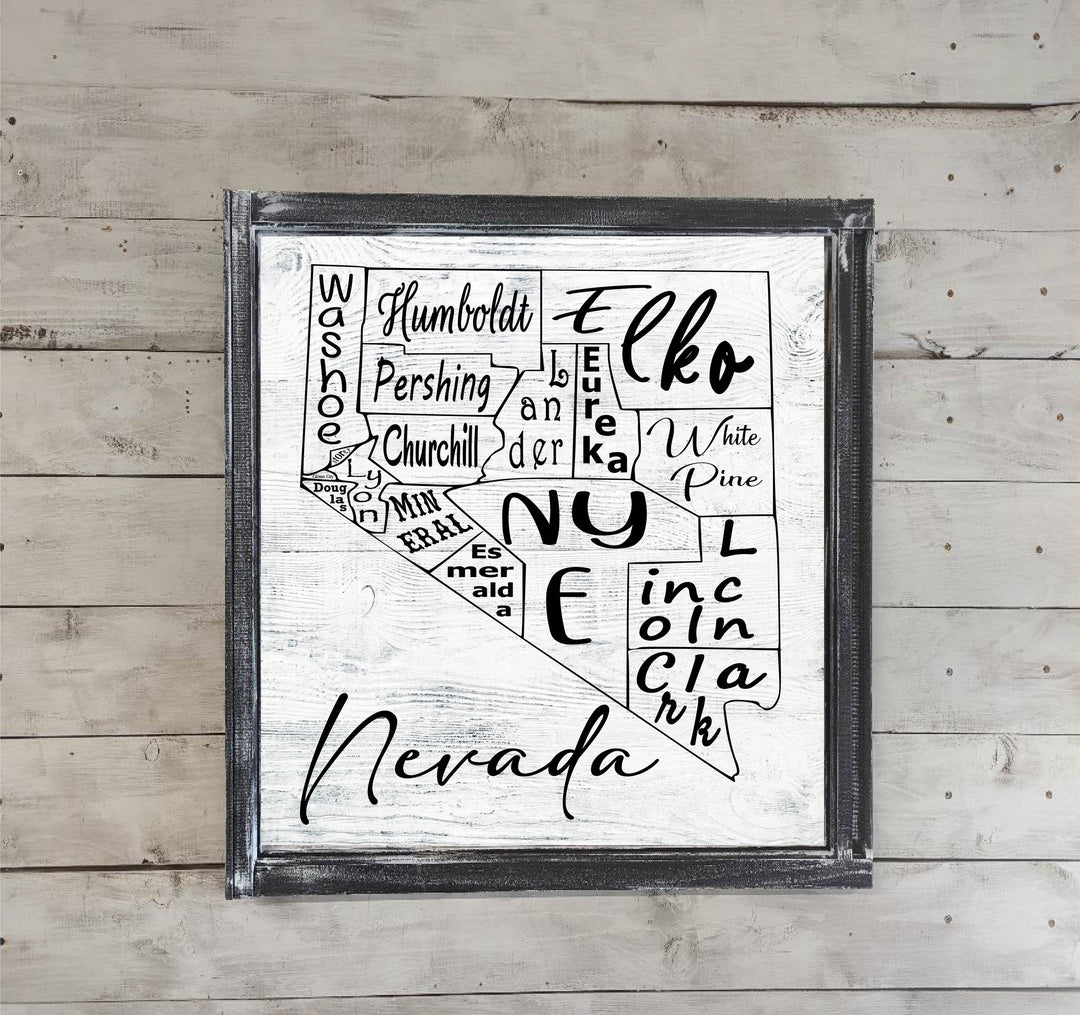 Washoe
Humboldt
Elko
Pershing
Lander
Eureka
Churchill
White
Pine
Lyon
Doug
las
MIN
ERAL
NY
E
Es
mer
ald
a
L
inc
oln
Cla
rk
Nevada